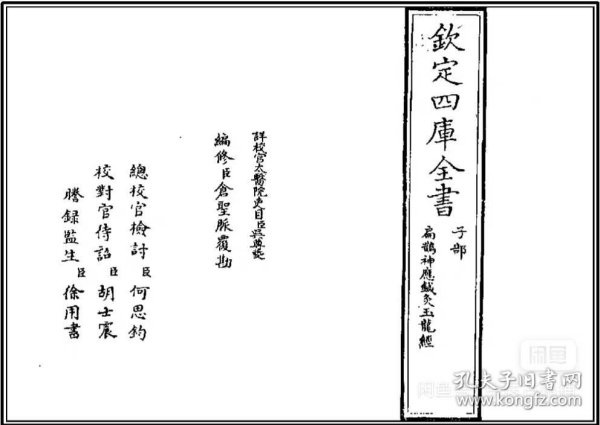 欽定四庫全書
子部
扁鵲神應鍼灸玉龍經
詳校官太醫院吏目臣吳尊夔
編修臣倉聖脈覆勘
總校官檢討臣何思鈞
校對官侍詔臣胡士震
謄錄監生臣徐用書
闲鱼
孔夫子旧书网
www.kongfz.com